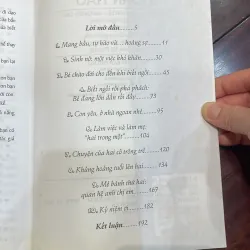 Lời mở đầu......5
Mang bầu, tự hào và... hoảng sợ......11
Sinh nở: một việc khó khăn......30
Bé chào đời cho đến khi biết ngồi......45
Biết ngồi rồi phá phách:
Bé đang lớn dần rồi đấy......75
Con yêu, ở nhà ngoan nhé......95
Làm việc và làm mẹ:
"hai trong một"......104
Chuyện của hai cô trông trẻ......120
Khủng hoảng tuổi lên hai......134
Mẻ bánh thứ hai:
quan hệ anh chị em......167
Kỷ niệm......182
Kết luận......192